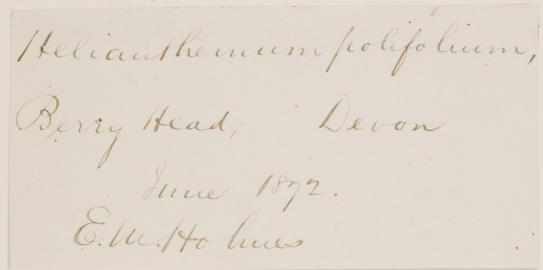 Helianthemum polifolium,
Berry Head, Devon
June 1872.
E. M. Holmes